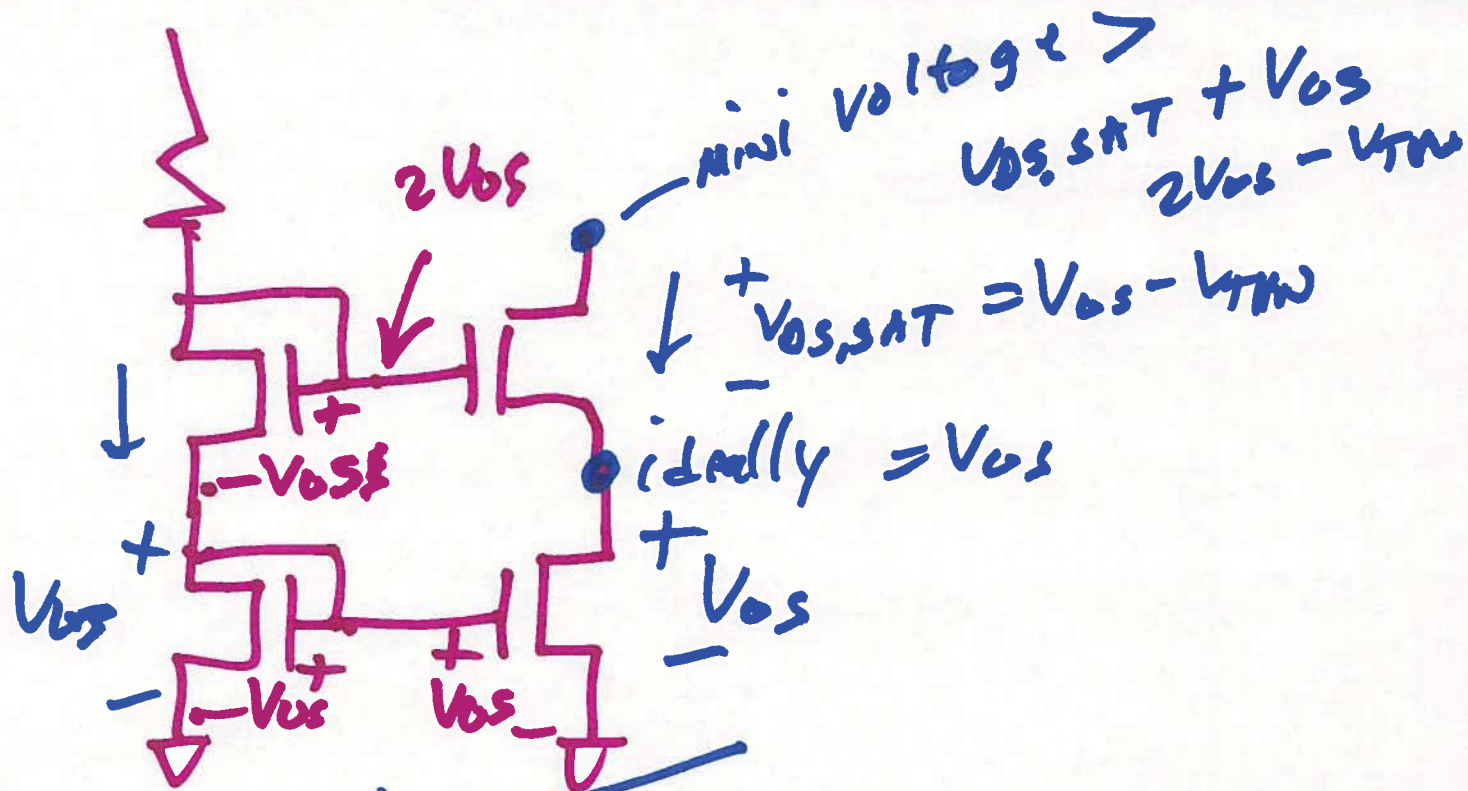 mini voltage >
VDS,SAT + VGS
2VGS - VTHN
2VGS
+
VDS,SAT = VGS - VTHN
-
+
- VGS
ideally = VGS
+
+
VGS
VGS
-
-
+
- VGS
+
VGS -